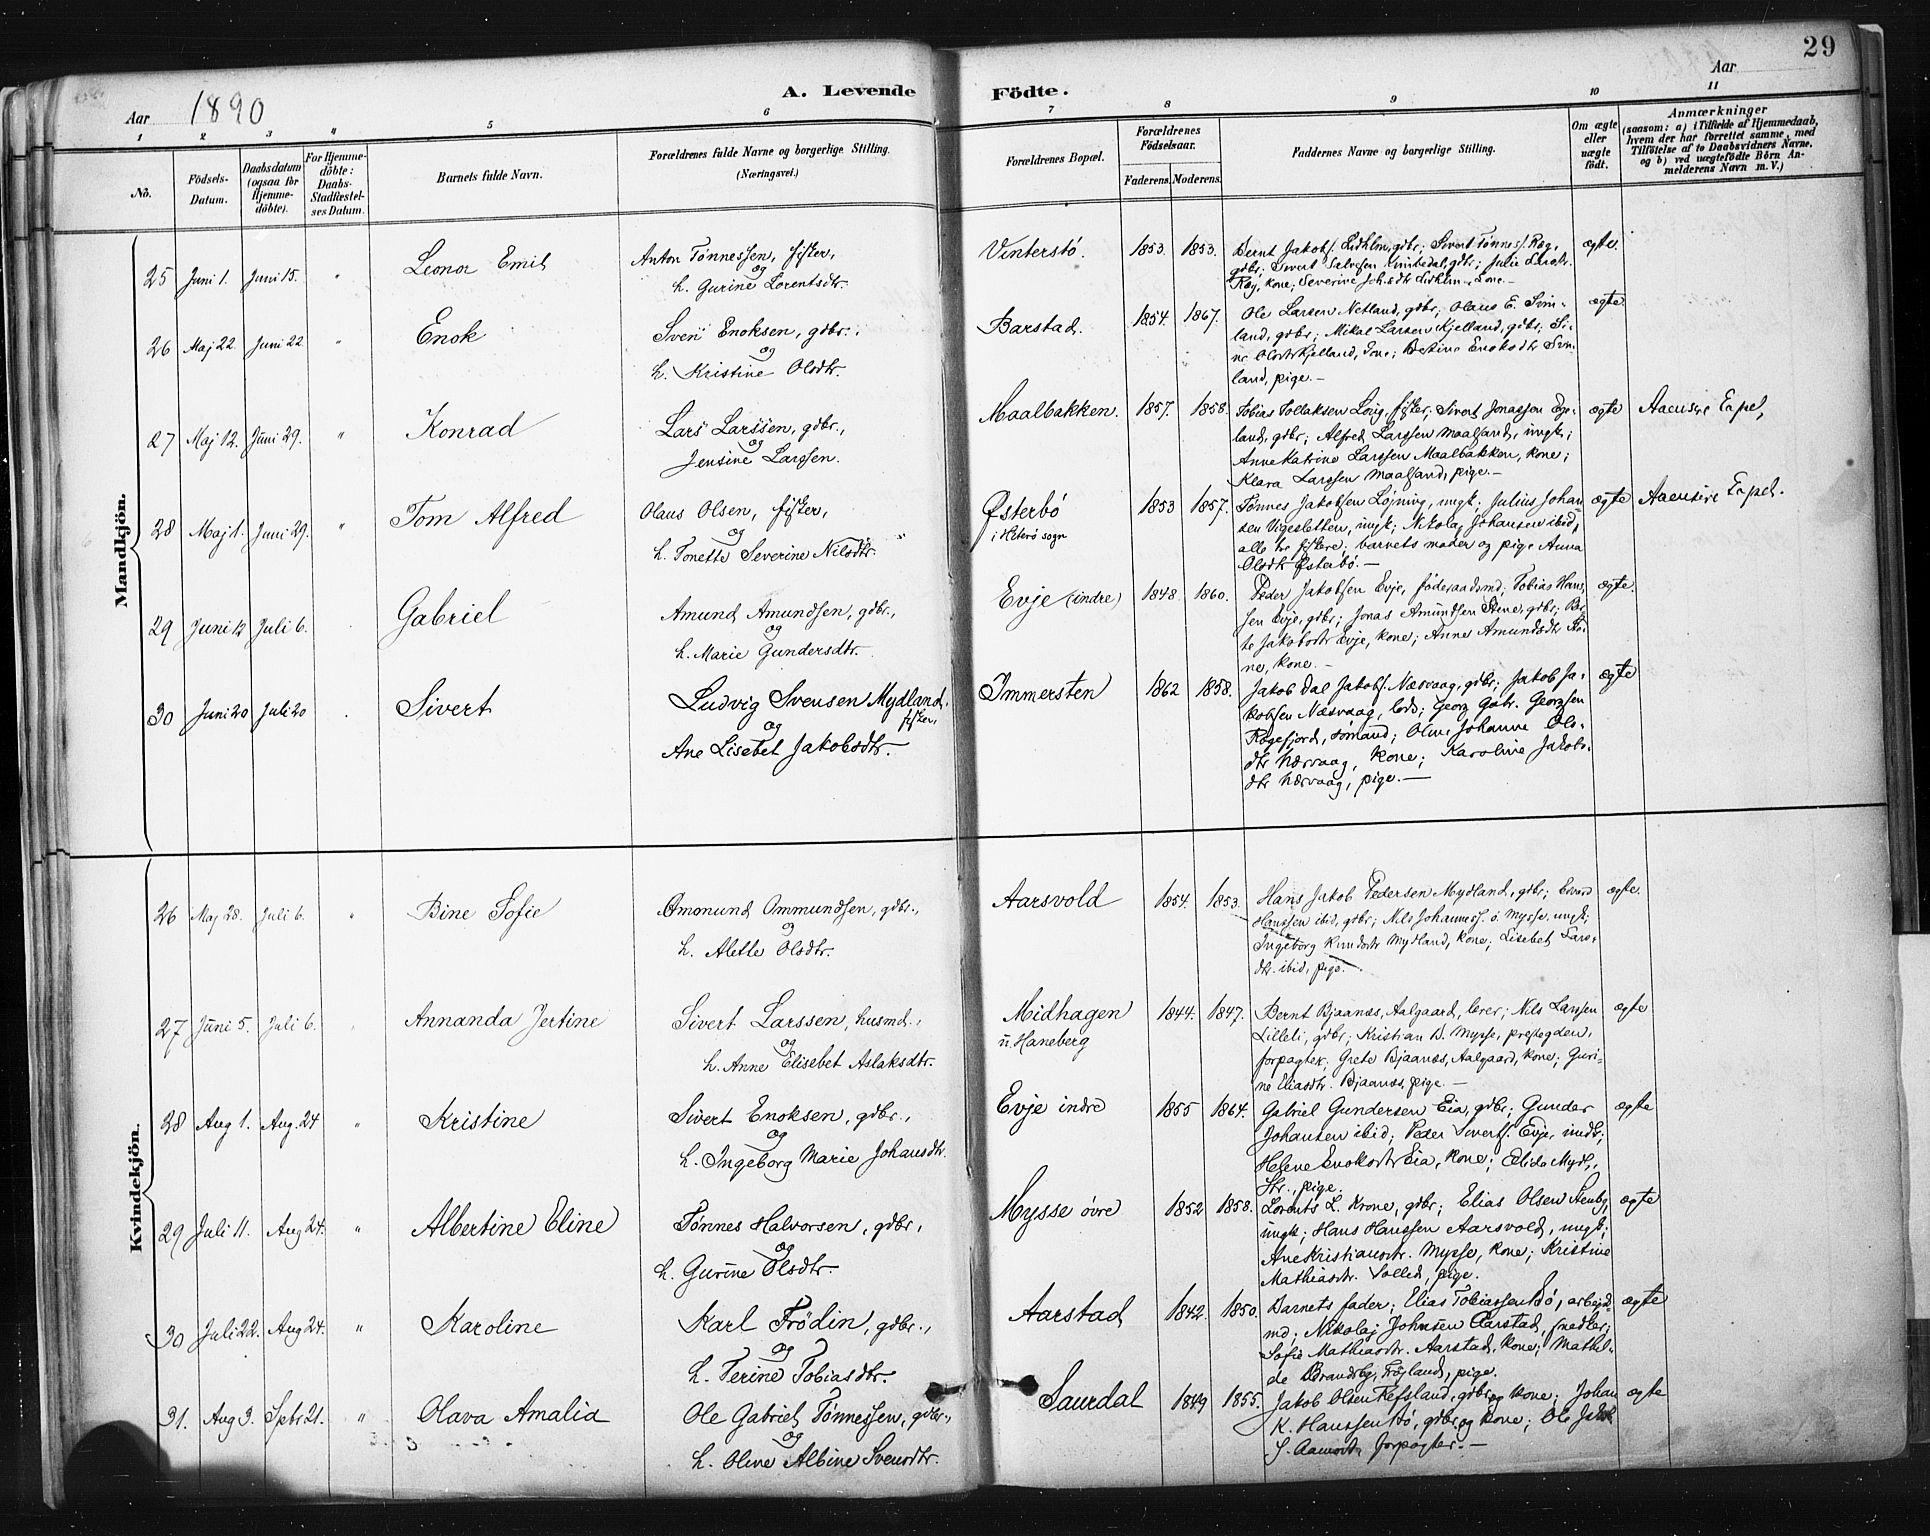 29
Aar 1890
A. Levende Födte.
Aar
1 2 3 " 5 6 7 8 9 10 11
No.
Födsels-Datum.
Daabsdatum (ogsaa for Hjemmedöbte).
For Hjemmedöbte: Daabs-Stadfæstelses Datum.
Barnets fulde Navn.
Forældrenes fulde Navne og borgerlige Stilling.
(Næringsvei.)
Forældrenes Bopæl.
Forældrenes Fødselsaar.
Faderens. Moderens.
Faddernes Navne og borgerlige Stilling.
Om ægte eller uægte födt.
Anmærkninger
(saasom: a) i Tilfælde af Hjemmedaab,
hvem der har forrettet samme, med
Tilföielse af to Daabsvidners Navne,
og b) ved uægtefödte Börn An-
melderens Navn m. V.)
Mandkjön.
25 Juni 1. Juni 15. " Leonor Emil
Anton Tønnessen, fisker,
og
h. Gurine Lorentsdtr.
Vinterstø. 1853. 1853.
ægte.
26 Maj 22. Juni 22 " Enok
Sven Enoksen, gdbr.
og
h. Kristine Olsdtr.
Barstad. 1854. 1867.
Ole Larsen Netland, gdbr; Olaus E. Svin-
land, gdbr; Mikal Larsen Kjelland, gdbr; Si-
land, pige.—
ægte
27 Maj 12. Juni 29. " Konrad
Lars Larssen, gdbr.,
og
Jensine Larssen.
Maalbakken. 1857. 1858.
land, gdbr; Alfred Larssen Maalsand, ungk;
Anne Katrine Larssen Maalbakken, kone;
Klara Larssen Maalsand, pige.—
ægte
28 Maj 1. Juni 29. " Tom Alfred
Olaus Olsen, fisker,
og
h. Tonette Severine Nilsdtr.
Østerbø
i Hiterø sogn
1853 1857.
Tønnes Jakobsen Løining, ungk; Julius Johan-
sen Vigesletten, ungk; Nikolaj Johansen ibid,
alle tre fiskere; barnets moder og pige Anna
Olsdtr Østerbø.—
ægte
29 Juni 12 Juli 6. " Gabriel
Amund Amundsen, gdbr.,
og
h. Marie Gundersdtr.
Evje (indre) 1848 1860.
Peder Jakobsen Evje, føderaadsmd; Tobias Han-
sen Evje, gdbr; Jonas Amundsen Stene, gdbr; Ber-
te Jakobsdtr Evje, kone; Anne Amundsdtr Ste-
ne, kone.—
ægte.
30 Juni 20 Juli 20 . Sivert
Ludvig Svensen Mydland,
fisker,
og
Ane Lisebet Jakobsdtr.—
Immersten 1862 1858.
Jakob Dal Jakobs. Næsvaag, gdbr; Jakob Ja-
kobsen Næsvaag, lods; Georg Gabr. Georgsen
Rægefjord, sømand; Oline Johanne Ols-
dtr Næsvaag, kone; Karoline Jakobs-
dtr Næsvaag, pige.—
ægte
Kvindekjön.
26 Maj 28. Juli 6. " Bine Sofie
Omonund Ommundsen, gdbr.,
og
h. Alette Olsdtr.
Aarsvold 1854. 1853.
Hans Jakob Pedersen Mydland, gdbr; Edvard
Hanssen ibid, gdbr; Nils Johanness. ø. Mysse, ungk;
Ingeborg Knudsdtr Mydland, kone; Lisebet Lars-
dtr. ibid, pige.
ægte.
27 Juni 5. Juli 6. " Annanda Jertine
Sivert Larssen, husmd.,
og
h. Anne Elisebet Aslaksdtr.
Midhagen
u. Haneberg
1844. 1847.
Bernt Bjaanæs, Aalgaard, lærer; Nils Larssen
Lilleli, gdbr; Kristian D. Mysse, prestegden,
forpagter; Grete Bjaanæs, Aalgaard, kone; Guri-
ne Eliasdtr. Bjaanæs, pige.—
ægte
28 Aug 1. Aug. 24 " Kristine
Sivert Enoksen, gdbr.,
og
h. Ingeborg Marie Johansdtr.
Evje indre 1855 1864.
Gabriel Gundersen Eia, gdbr; Gunder
Johansen ibid; Peder Siverts. Evje, indr;
Helene Enoksdtr Eia, kone;
pige.
ægte
29 Juli 11. Aug 24. " Albertine Eline
Tønnes Halvorsen, gdbr,
og
h. Gurine Olsdtr.
Mysse øvre 1852 1858.
Lorents L. Krone, gdbr; Elias Olsen Stenbg,
ungk; Hans Hanssen Aarsvold, ungk;
Ane Kristiansdtr. Mysse, kone; Kristine
Mathiasdtr. Sollid, pige.
ægte
30 Juli 22. Aug 24. " Karoline
Karl Frödin, gdbr.,
og
h. Terine Tobiasdtr.
Aarstad 1842. 1850.
Barnets fader; Elias Tobiassen Bø, arbejd-
md; Nikolaj Johnsen Aarstad, snedker;
Sofie Mathiasdtr. Aarstad, kone; Mathil-
de Brandsbg, Frøyland, pige.
ægte
31. Aug 3. Spbr 21. " Olava Amalia
Ole Gabriel Tønnessen, gdbr.,
og
h. Oline Albine Svensdtr.
Saurdal 1849 1855.
Jakob Olsen Refsland, gdbr, og kone; Johan
K. Hanssen Bø, gdbr, og kone; Ole Jakob
S. Aamodt, forpagter.—
ægte